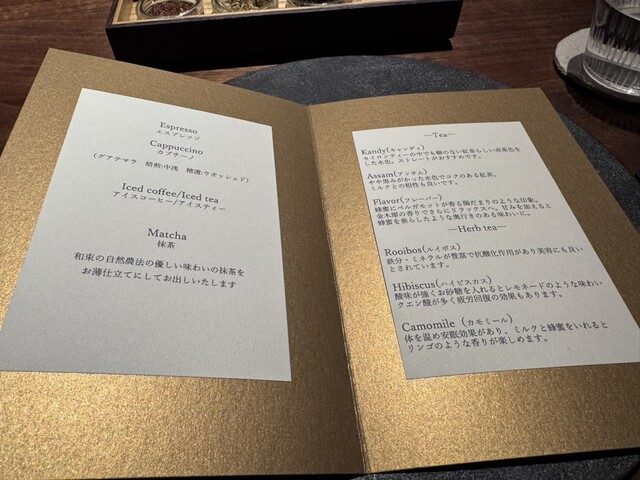 Espresso
エスプレッソ
Cappuccino
カプチーノ
(グアテマラ 焙煎:中浅 精選:ウオッシュド)
Iced coffee/Iced tea
アイスコーヒー/アイスティー
Matcha
抹茶
和束の自然農法の優しい味わいの抹茶を
お薄仕立てにしてお出しいたします
—Tea—
Kandy(キャンディ)
セイロンティーの中でも癖のない紅茶らしい赤茶色を
した水色。ストレートがおすすめです。
Assam(アッサム)
やや黒みがかった水色でコクのある紅茶。
ミルクとの相性も良いです。
Flavor(フレーバー)
蜂蜜にベルガモットが香る陽だまりのような印象。
金木犀の香りでさらにリラックスへ。甘みを加えると
蜂蜜を垂らしたような奥行きのある味わいに。
—Herb tea—
Rooibos(ルイボス)
鉄分・ミネラルが豊富で抗酸化作用があり美容にも良い
とされています。
Hibiscus(ハイビスカス)
酸味が強くお砂糖を入れるとレモネードのような味わい
クエン酸が多く疲労回復の効果もあります。
Camomile (カモミール)
体を温め安眠効果があり、ミルクと蜂蜜をいれると
リンゴのような香りが楽しめます。